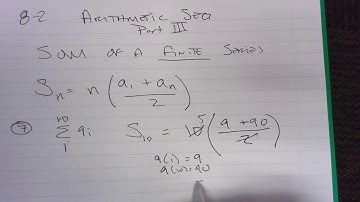 8-2 Arithmetic Seq
Part III
Sum of a Finite Series
Sₙ = n ( (a₁ + aₙ) / 2 )
⑦ ∑ (10, i) 9i S₁₀ = 10 5 ( (9 + 90) / 2 )
9(1) = 9
9(10) = 90